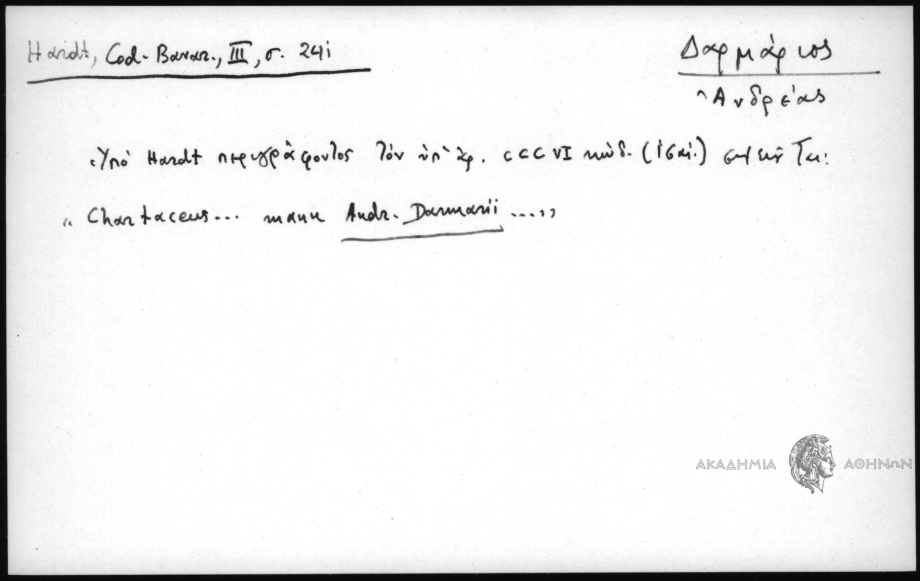 Hardt, Cod. Bavar., III, σ. 241
Δαρμάριος
Ἀνδρέας
Ὑπὸ Hardt περιγράφοντος τὸν ὑπ' ἀρ. CCCVI κώδ. (ἰσαι.)
„ Chartaceus... manu Andr. Darmarii ....„
ΑΚΑΔΗΜΙΑ ΑΘΗΝΩΝ